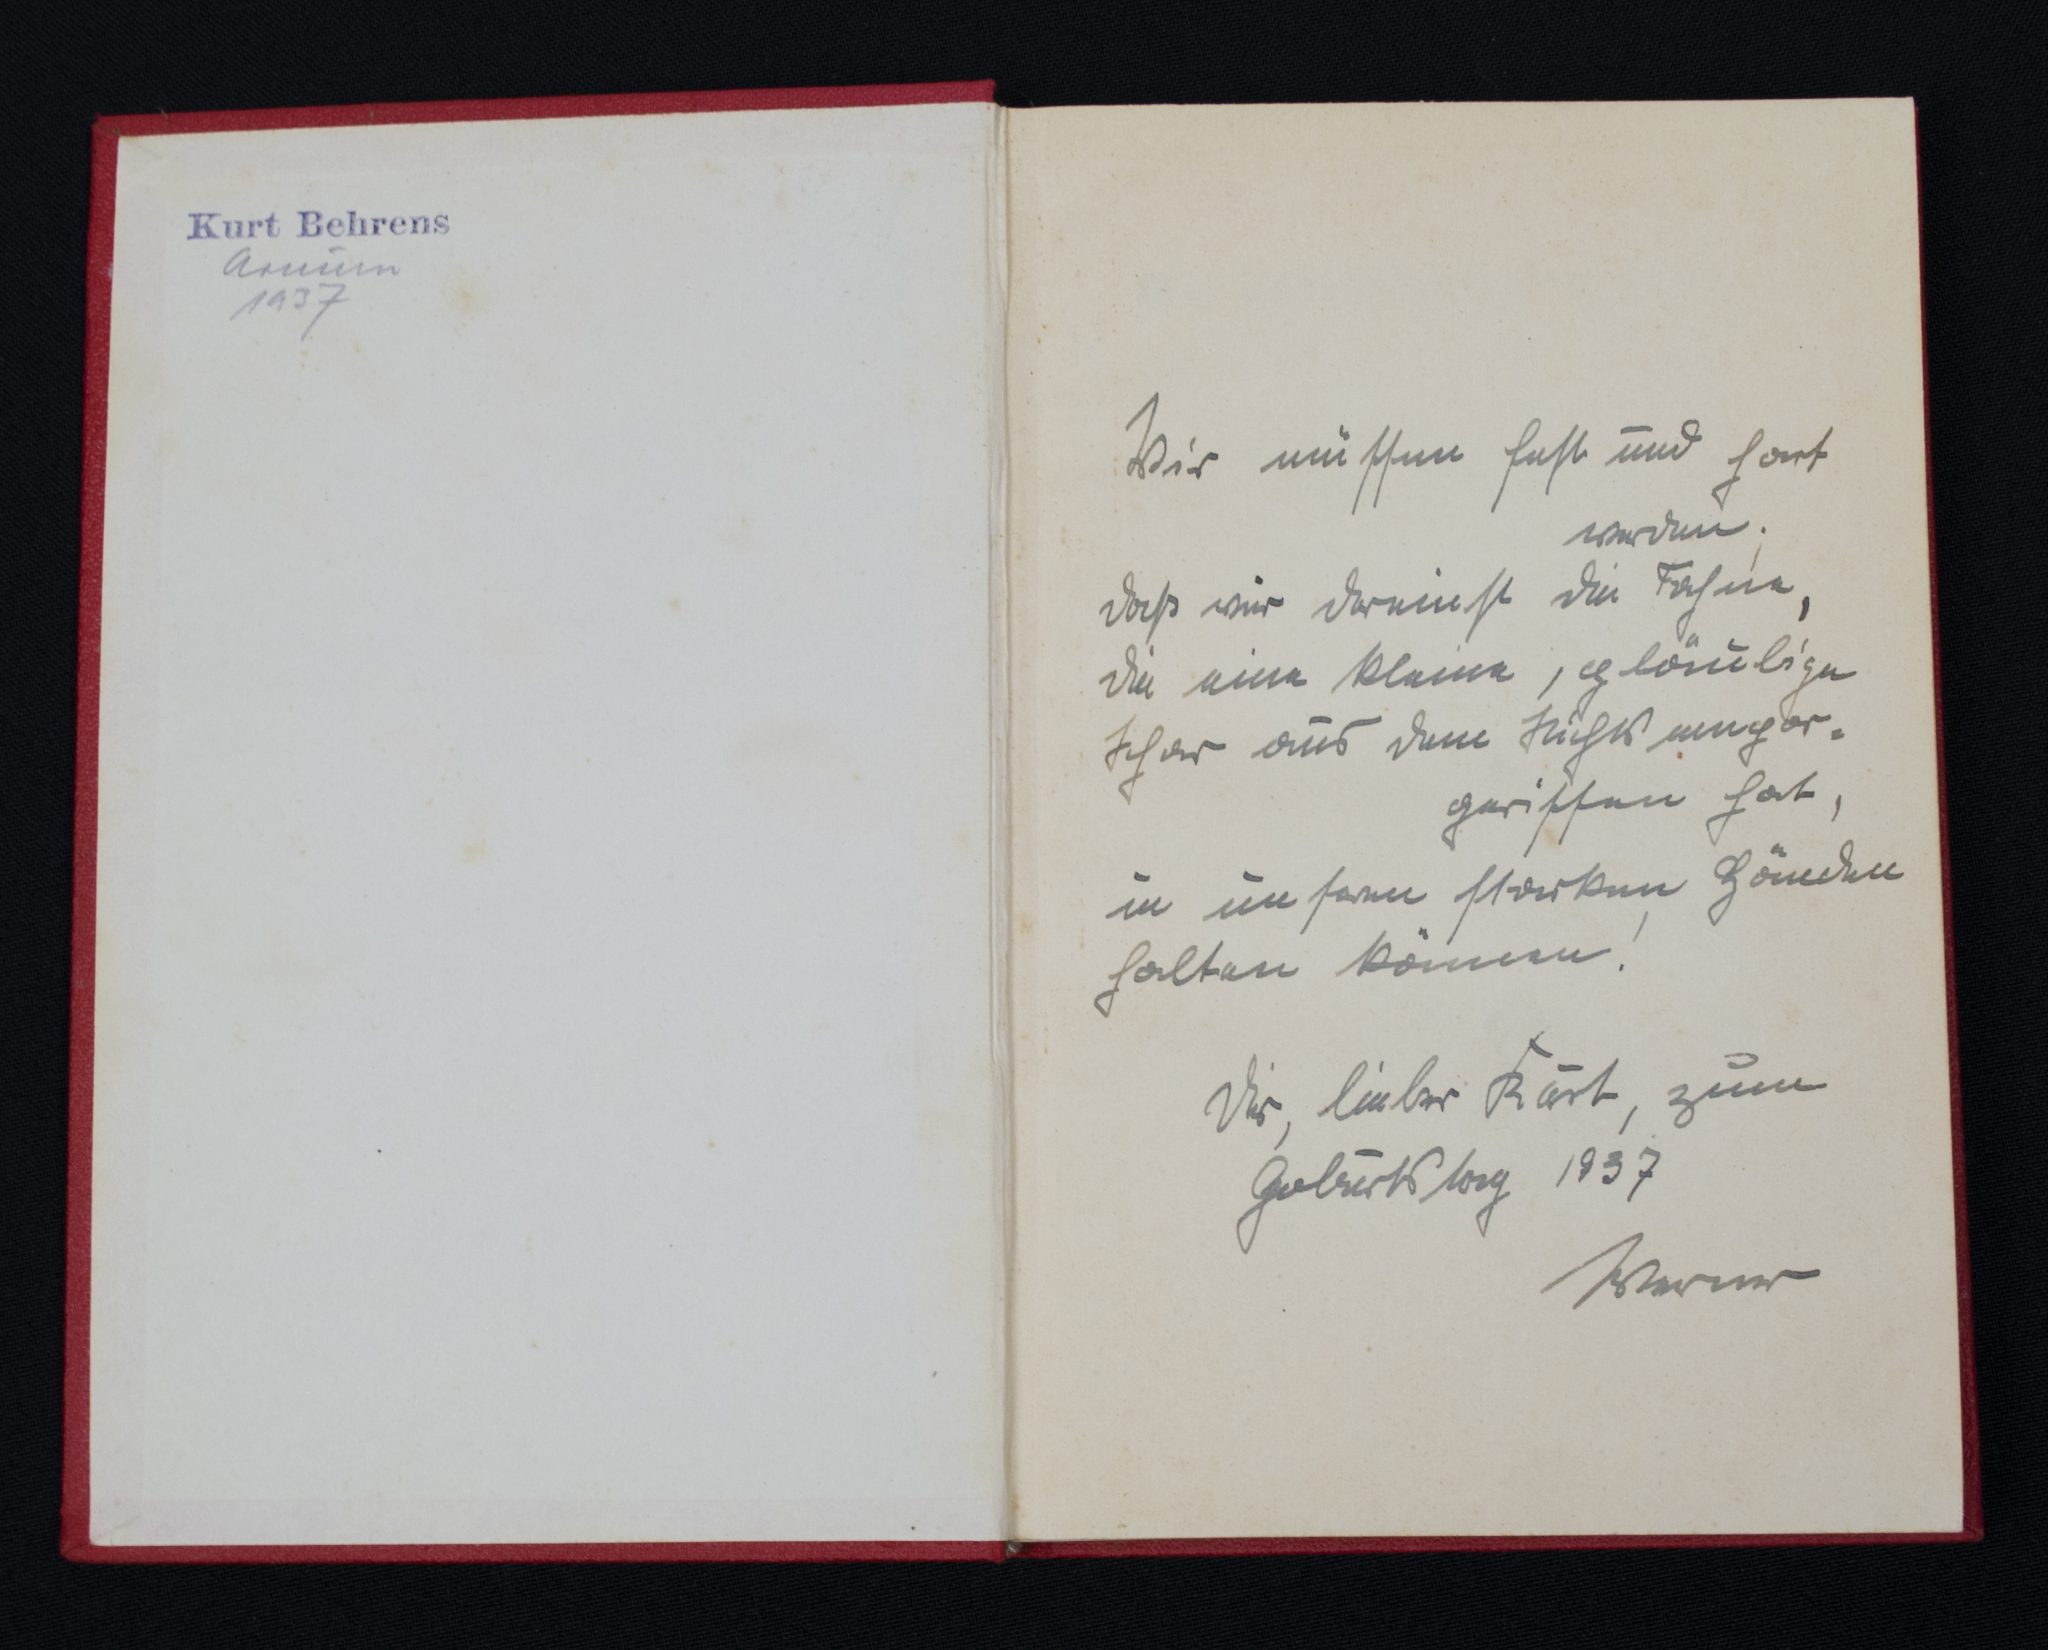 Kurt Behrens
Arnum
1937
Wir müssen fest und hart
werden,
daß wir dereinst die Fahne,
die eine kleine, gläubige
Schar aus dem Nichts empor-
gerissen hat,
in unseren starken Händen
halten können!
Dir, lieber Kurt, zum
Geburtstag 1937
Werner